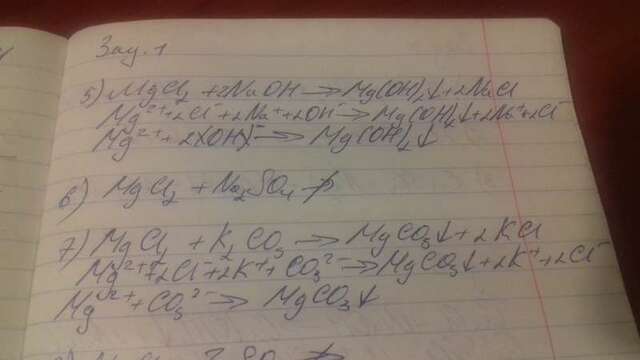 Зад. 1
5) MgCl₂ + 2NaOH → Mg(OH)₂↓ + 2NaCl
Mg²⁺ + 2Cl⁻ + 2Na⁺ + 2OH⁻ → Mg(OH)₂↓ + 2Na⁺ + 2Cl⁻
Mg²⁺ + 2(OH)⁻ → Mg(OH)₂↓
6) MgCl₂ + Na₂SO₄ ↛
7) MgCl₂ + K₂CO₃ → MgCO₃↓ + 2KCl
Mg²⁺ + 2Cl⁻ + 2K⁺ + CO₃²⁻ → MgCO₃↓ + 2K⁺ + 2Cl⁻
Mg²⁺ + CO₃²⁻ → MgCO₃↓